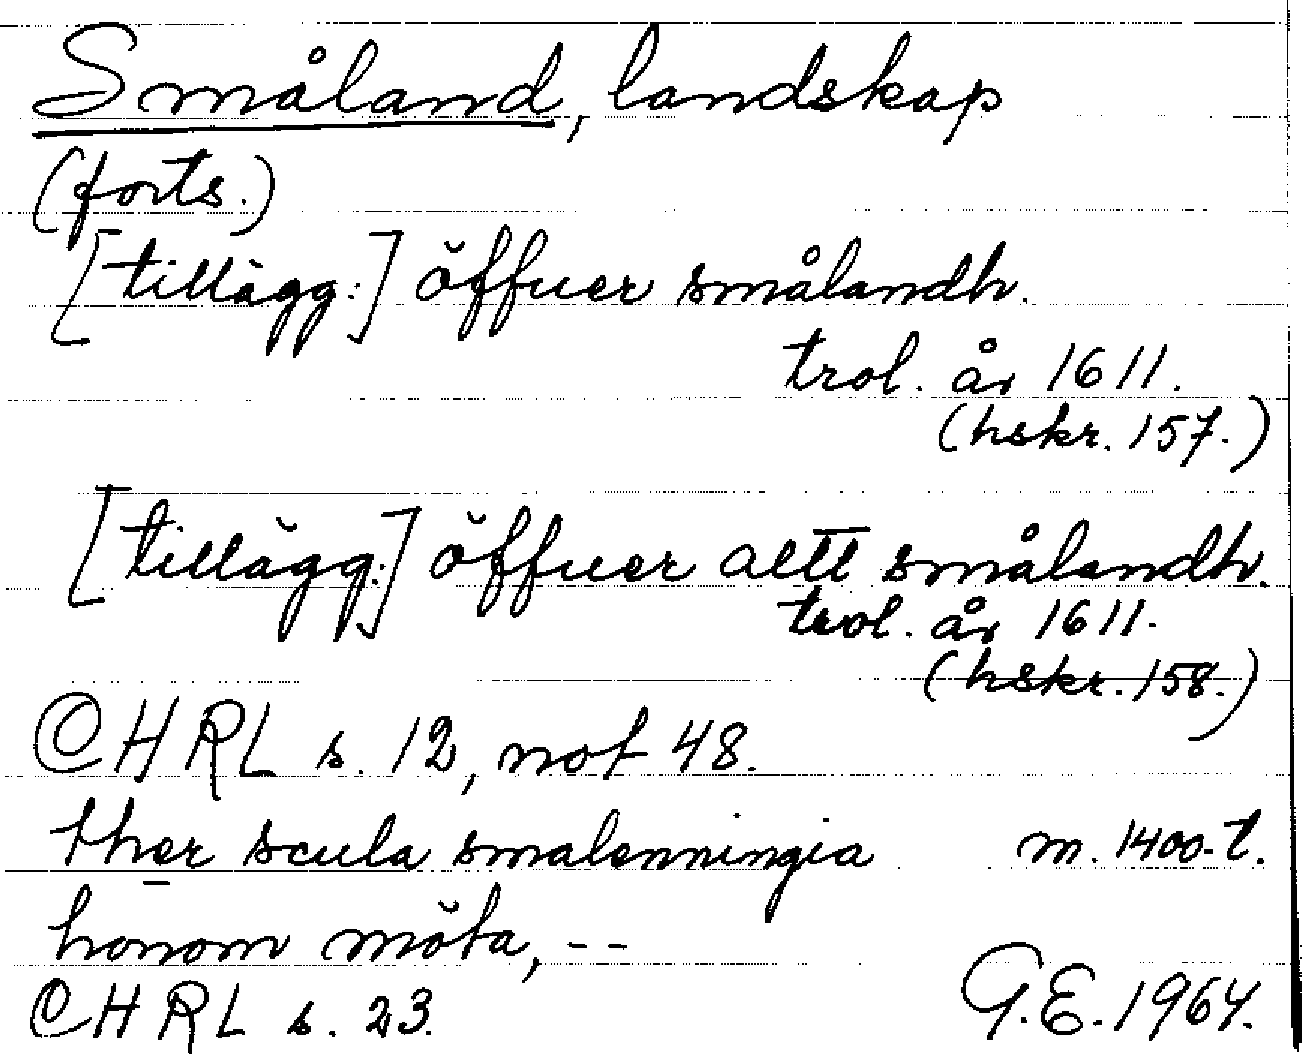 Småland, landskap
(forts.)
[tillägg:] öffuer smålandh.
trol. år 1611.
(hskr. 157.)
[tillägg:] öffuer altt smålandh.
trol. år 1611.
(hskr. 158.)
CHRL s. 12, not 48.
ther scula smalenningia m. 1400-t.
honom möta, --
CHRL s. 23. G.E. 1964.